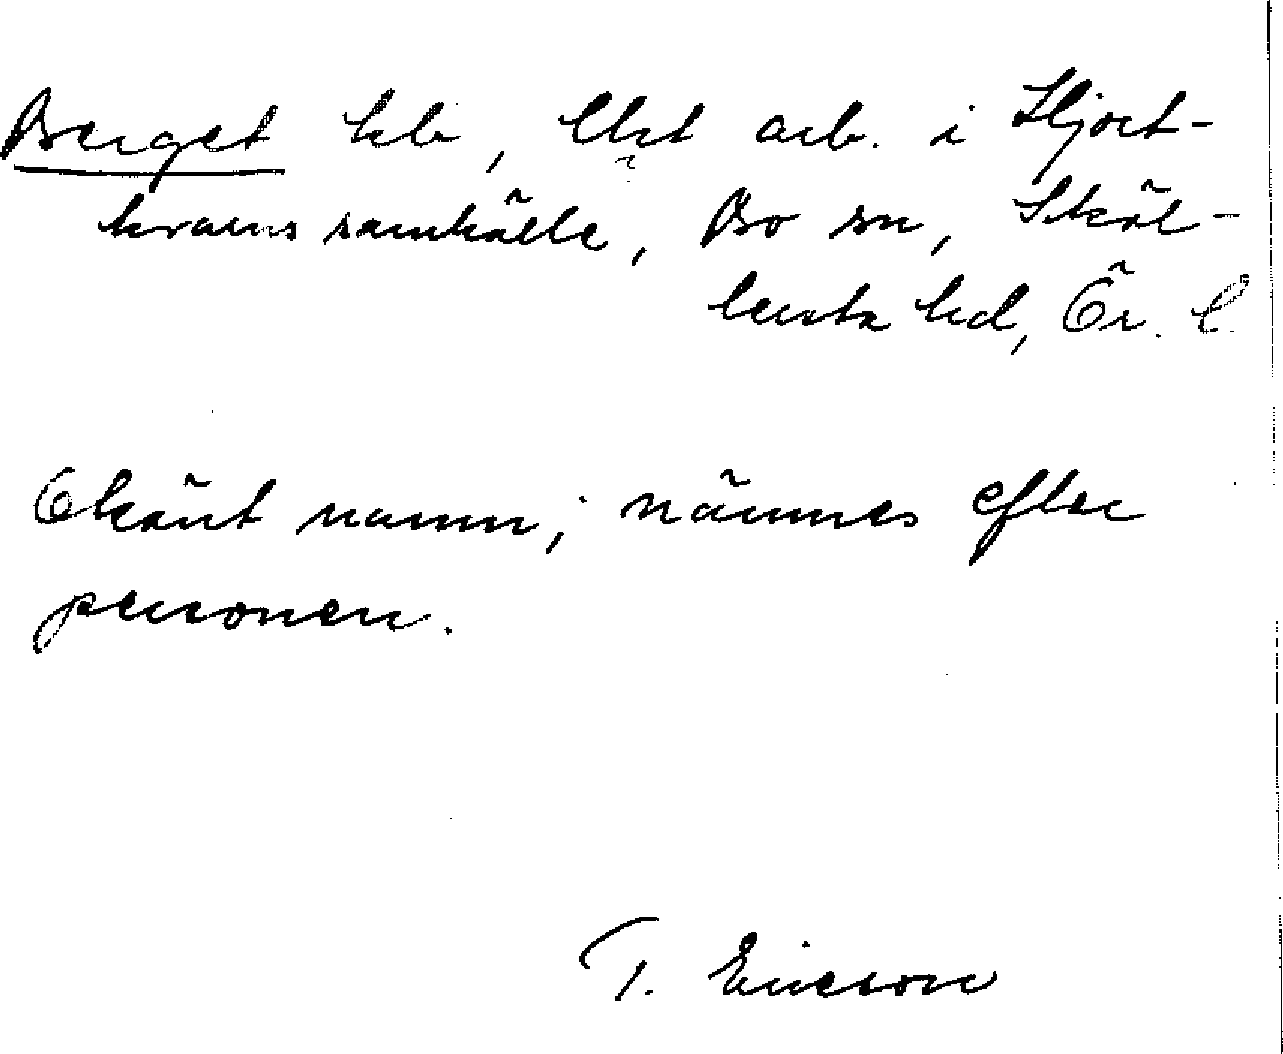 Berget hb, lht arb. i Hjort-
kvarns samhälle, Bo sn, Sköl-
lersta hd, Ör. l.
Okänt namn; nämnes efter
personen.
T. Ericson